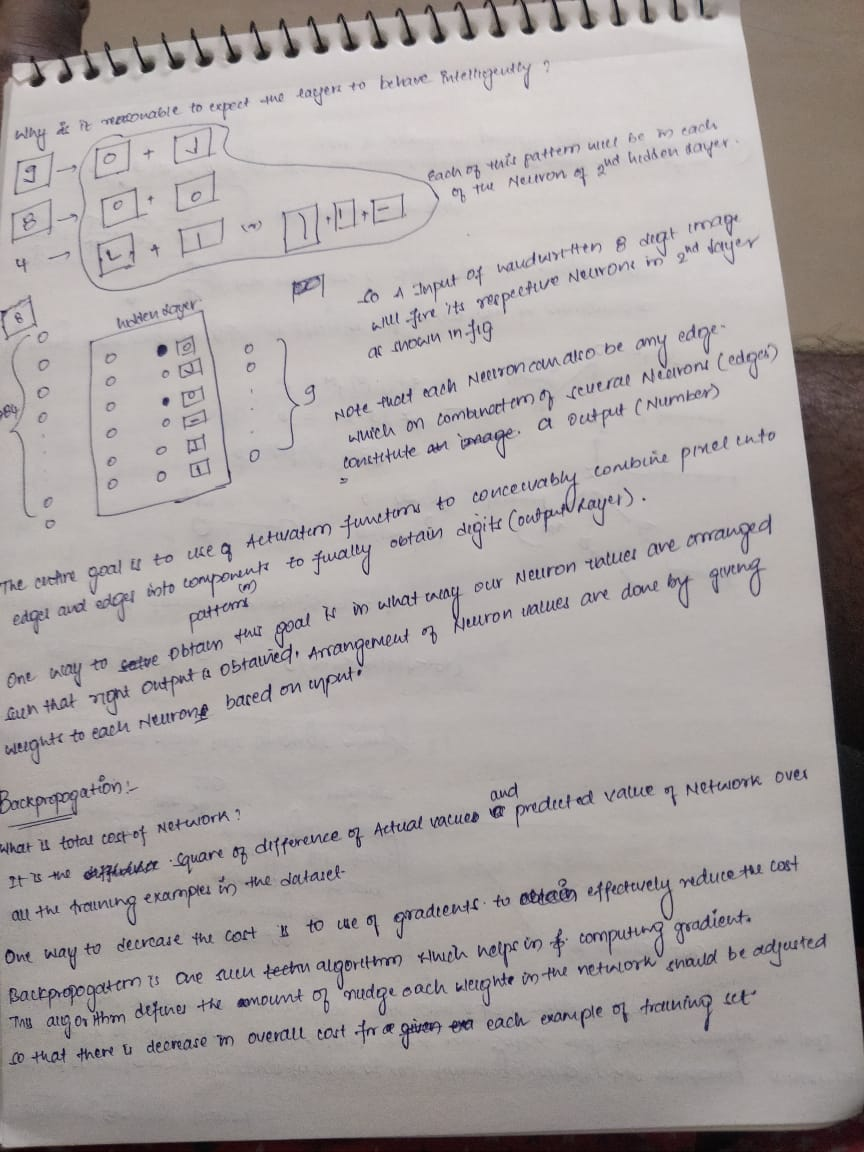 Why is it reasonable to expect the layers to behave intelligently?
9 → 0 + 1
8 → 0 + 0
4 → + 1 (or) + 1 + -
Each of this pattern will be in each
of the Neuron of 2nd hidden layer.
so A Input of handwritten 8 digit image
will fire its respective Neurons in 2nd layer
as shown in fig
8
hidden layer
9
Note that each Neuron can also be any edge.
which on combination of several Neurons (edges)
constitute an image. a output (Number)
The entire goal is to use of Activation functions to conceivably combine pixel into
edges and edges into components to finally obtain digits (output layer).
(or)
patterns
One way to solve obtain this goal is in what way our Neuron values are arranged
such that right output is obtained. Arrangement of Neuron values are done by giving
weights to each Neurons based on input.
Backpropogation:-
What is total cost of Network?
It is the square of difference of Actual values and predicted value of Network over
all the training examples in the dataset.
One way to decrease the cost is to use of gradients to obtain effectively reduce the cost
Backpropogation is one such techn algorithm which helps in computing gradient.
This algorithm defines the amount of nudge each weights in the network should be adjusted
so that there is decrease in overall cost for a given exa each example of training set.